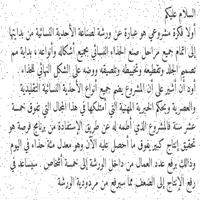 السلام عليكم
أولا فكرة مشروعي هو عبارة عن ورشة لصناعة الأحذية النسائية من بدايتها
إلى اتمام جميع مراحل صنع الحذاء النسائي بجميع أشكاله وأنواعه، بداية مم
تصميم الجلد وتقطيعه وتخييطه وتلصيقه ووضعه على الشكل النهائي للحذاء.
أود أن أشير على أن المشروع يضم جميع أنواع الأحذية النسائية التقليدية
والعصرية وبحكم الخبرة المهنية التي أمتلكها في هذا المجال التي تفوق خمسة
عشر سنة فالمشروع الذي أطمح له عن طريق الإستفادة من برنامج فرصة هو
تحقيق إنتاج كبير يفوق ما أحصل عليه الآن وهو معدل مئة حذاء في اليوم
وذالك برفع عدد العمال من داخل الورشة إلى خمسة أشخاص. سيساعد في
رفع الإنتاج إلى الضعف مما سيرفع من مردودية الورشة